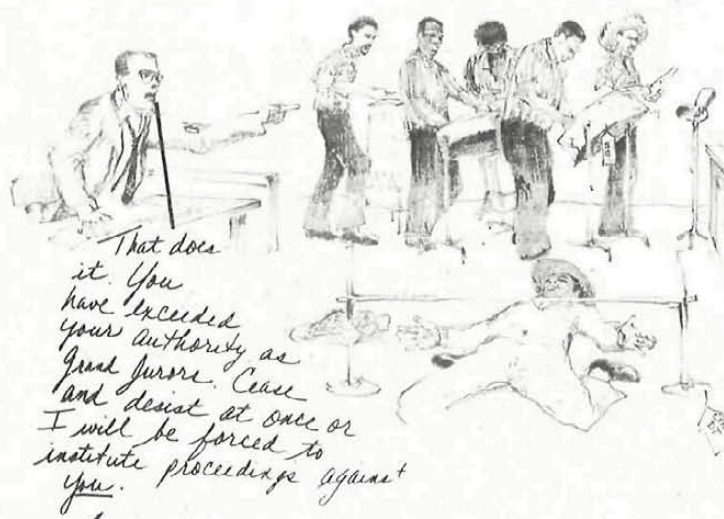 That does
it. You
have exceeded
your authority as
Grand Jurors. Cease
and desist at once or
I will be forced to
institute proceedings against
you.